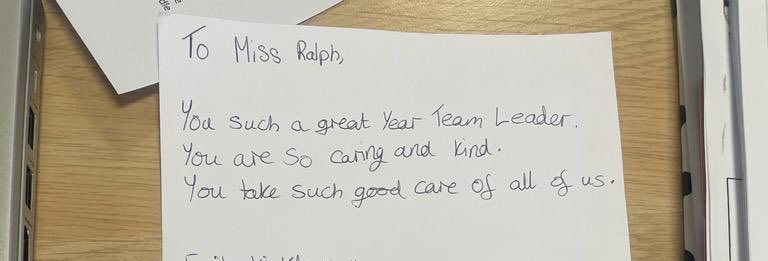 To Miss Ralph,
You such a great Year Team Leader.
You are so caring and kind.
You take such good care of all of us.